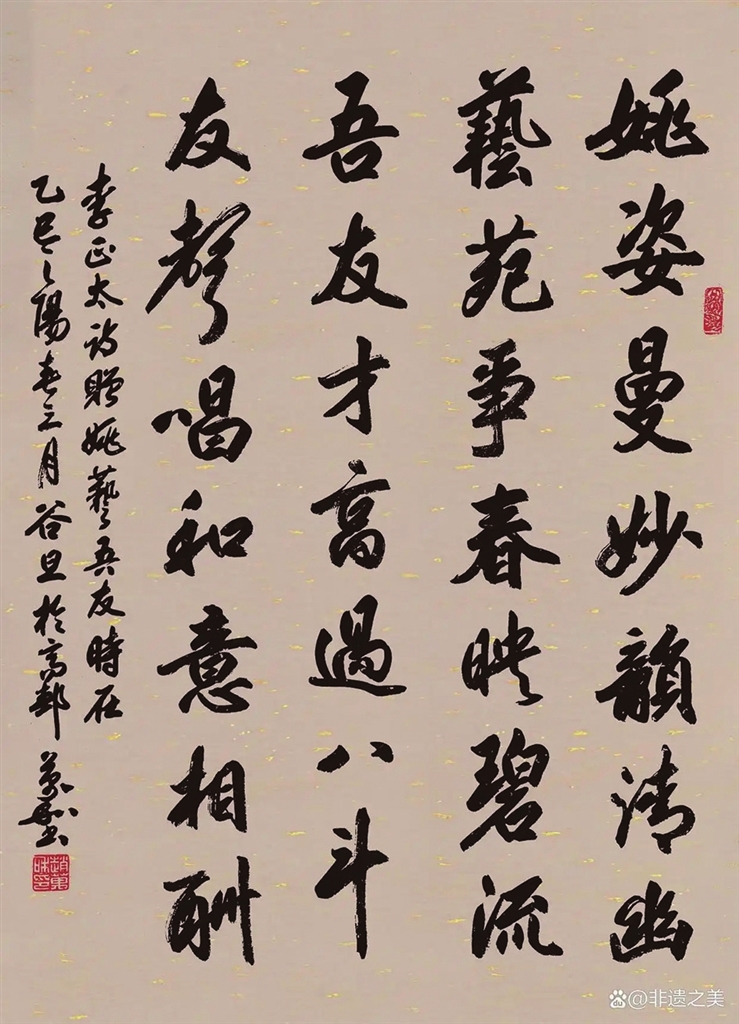 姚姿曼妙韻清幽
藝苑爭春映碧流
吾友才高過八斗
友聲唱和意相酬
李正太詩贈姚藝吾友時在
乙巳之陽春三月谷旦於高郵
@非遗之美